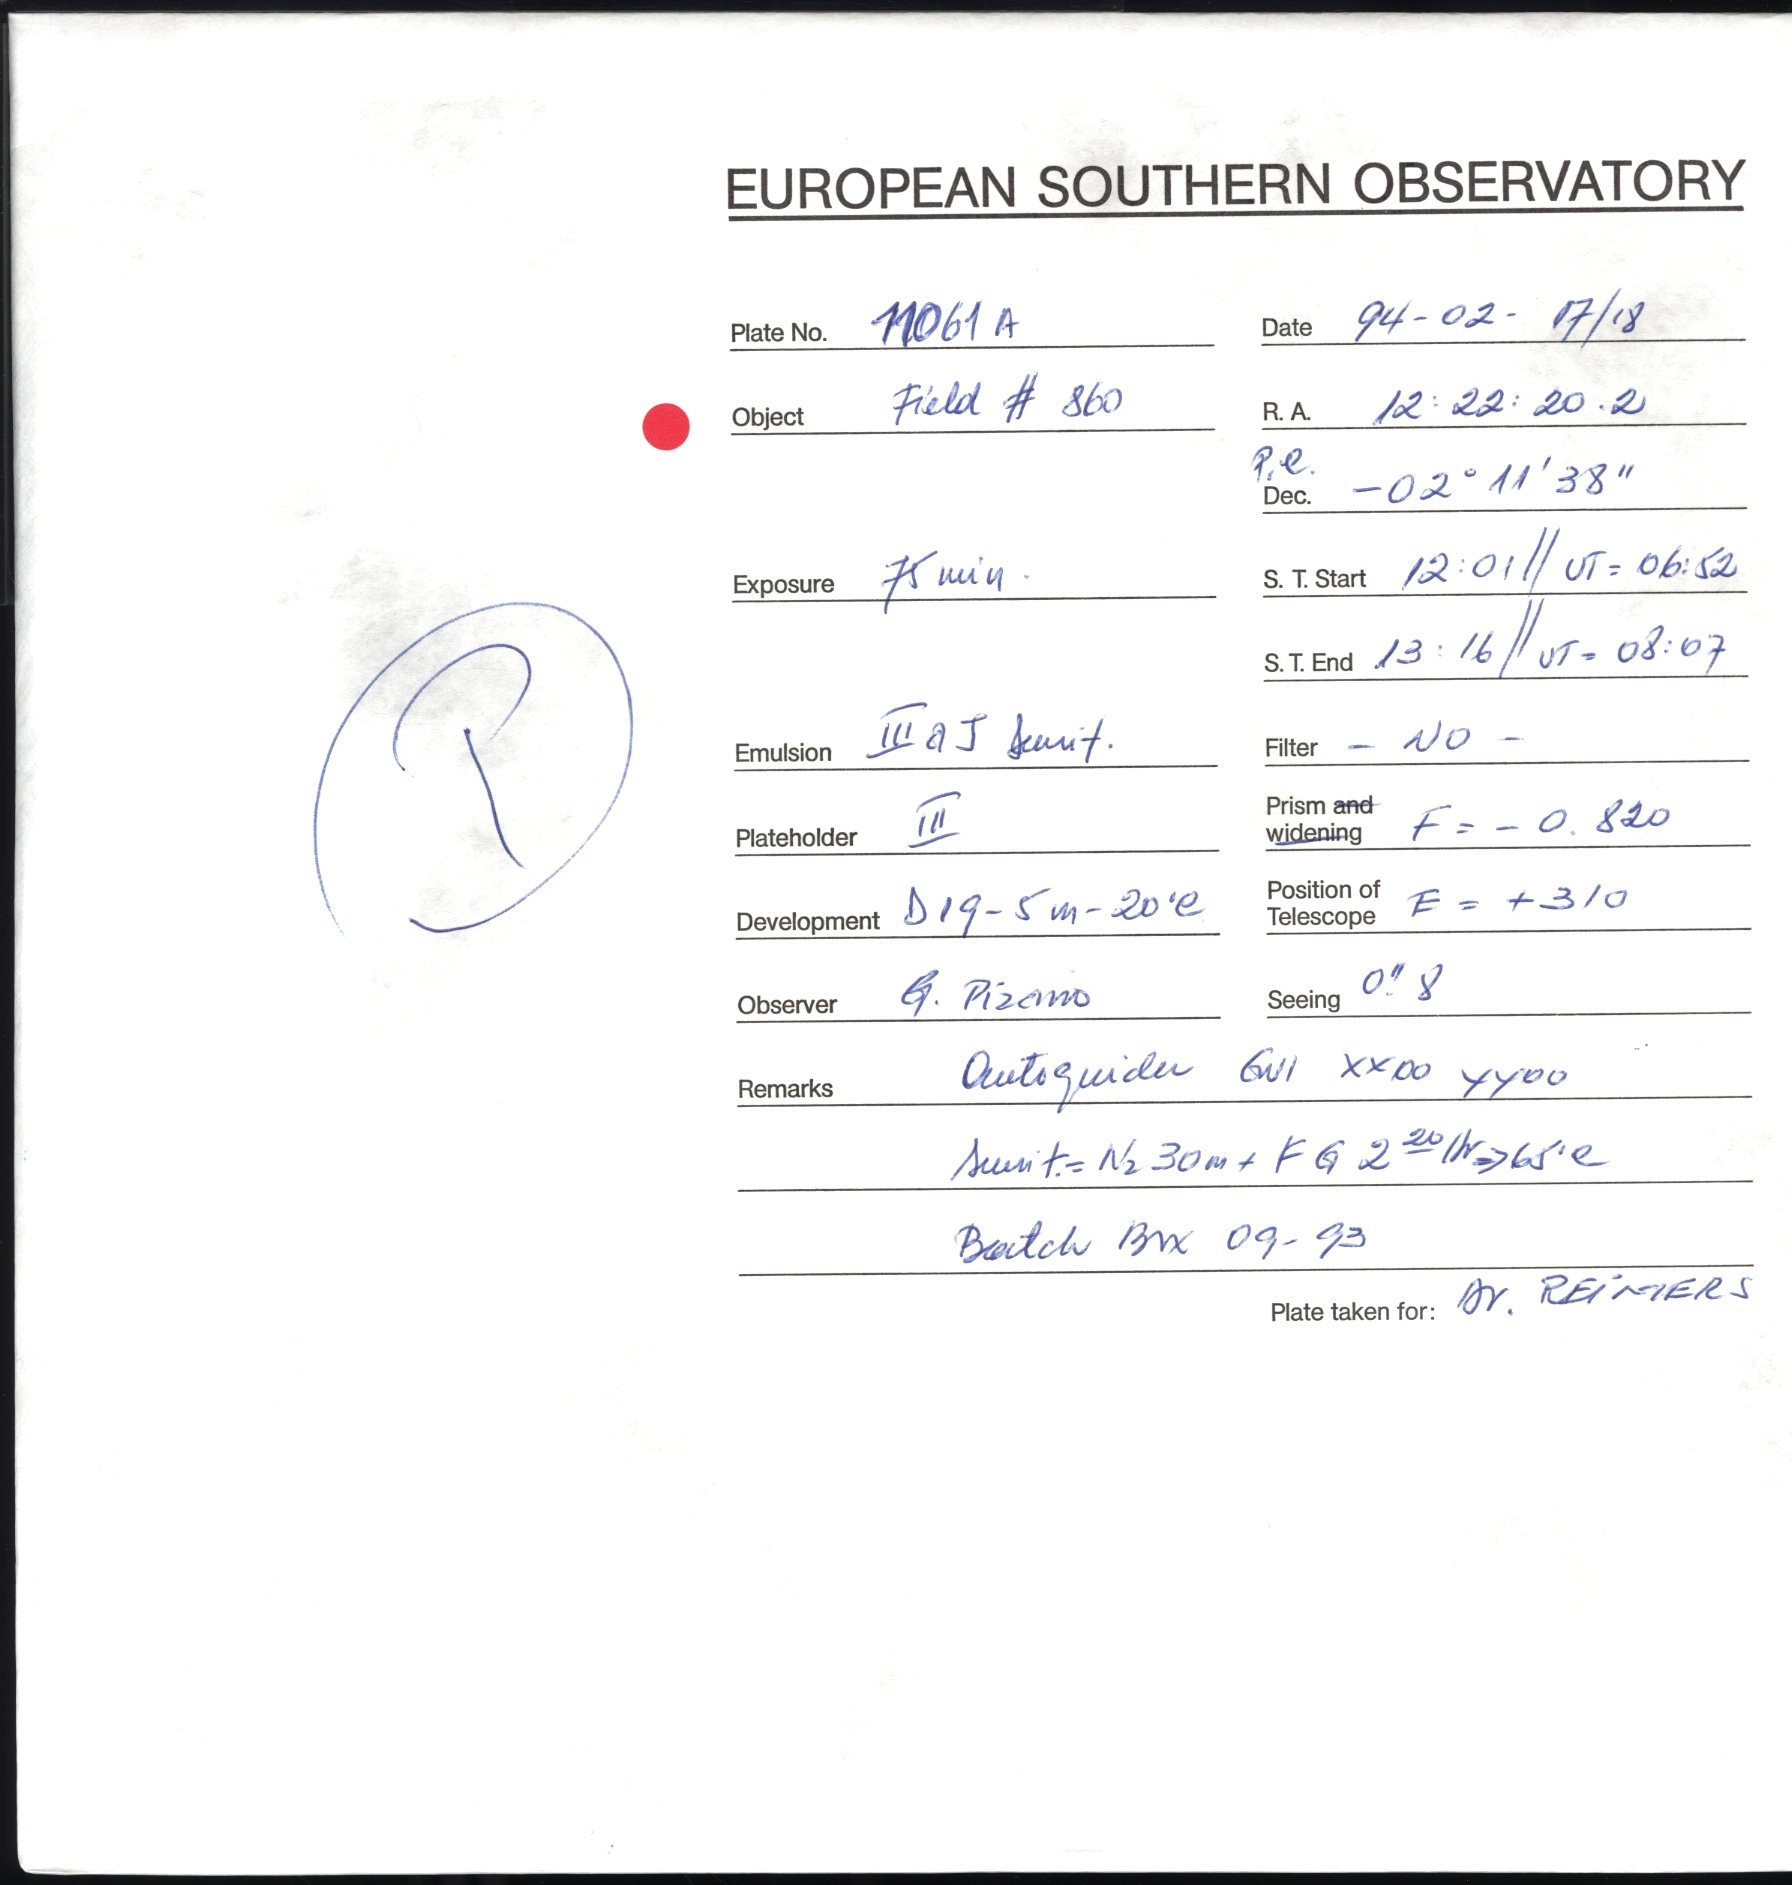 EUROPEAN SOUTHERN OBSERVATORY
Plate No. 11061 A Date 94-02- 17/18
Object Field # 860 R. A. 12:22:20.2
P.C.
Dec. -02° 11' 38"
Exposure 75 min. S. T. Start 12:01 // UT = 06:52
S. T. End 13:16 // UT = 08:07
Emulsion III a J Sensit. Filter - NO -
Plateholder III Prism and widening F = - 0.820
Development D19-5m-20°C Position of Telescope E = +310
Observer G. Pizarro Seeing 0"8
Remarks Autoguider GW1 XX00 YY00
Sensit.= N2 30m + F G 2 20 Hr => 65°C
Batch Box 09-93
Plate taken for: Dr. REIMERS
P